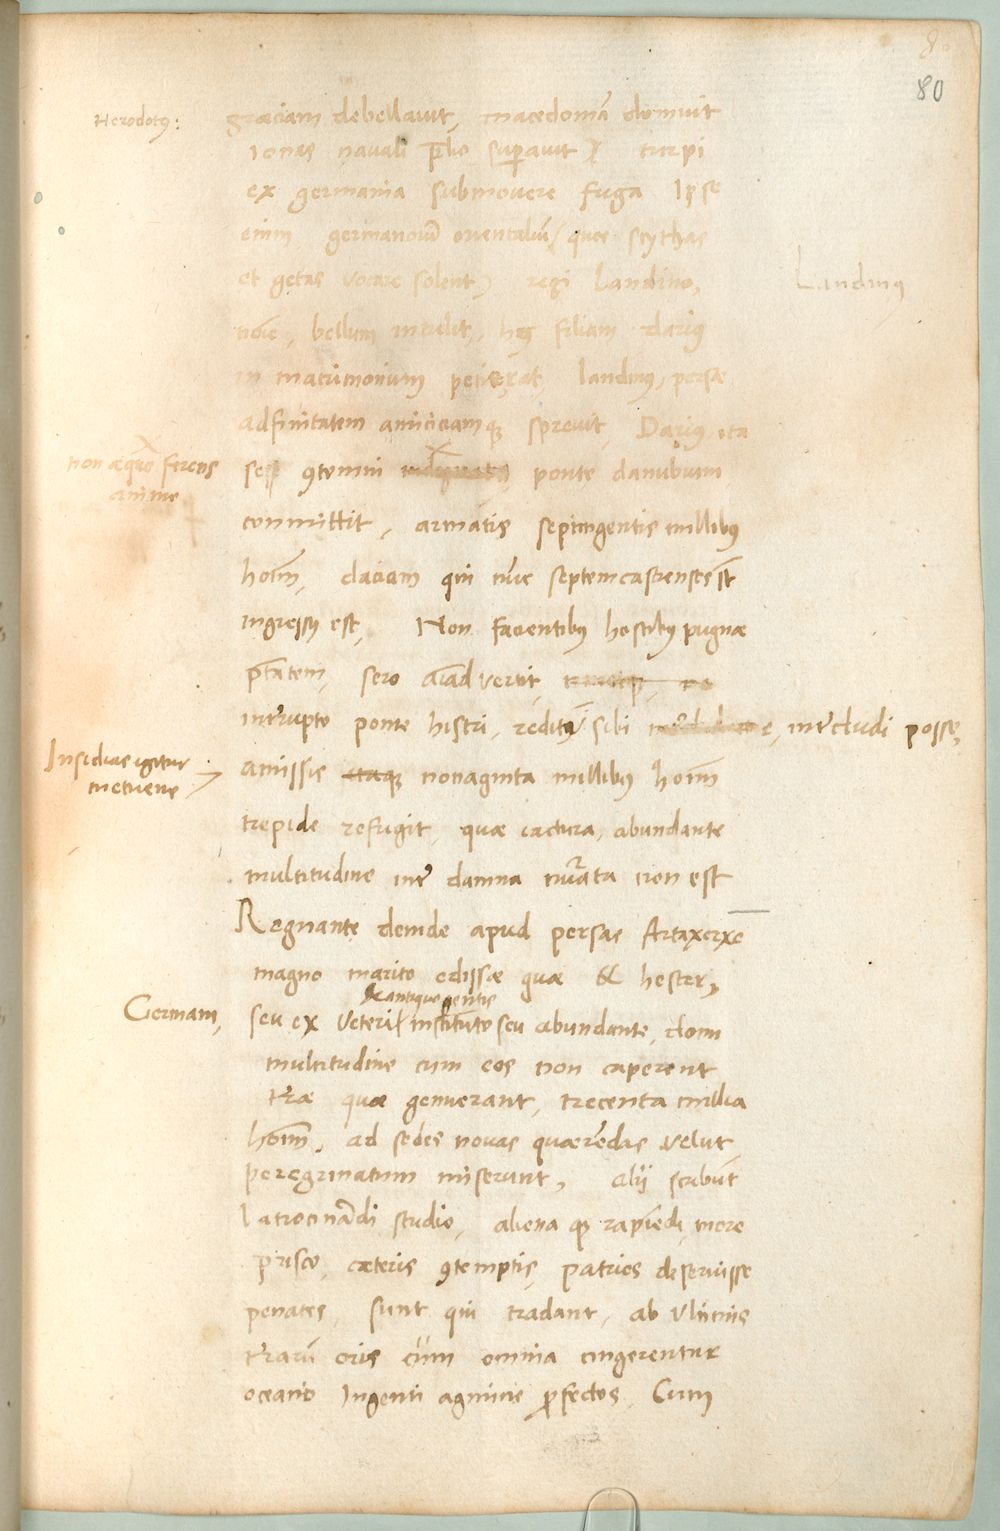 80
80
Herodotus:
græciam debellauit, macedoniā domuit
Ionas nauali p̄lio sup̱auit turpi
ex germania submouere fuga Ipse
enim germanorū orientaliū (quos scythas
et getas vocare solent) regi Landino,
Landinus
noīe, bellum intulit, filiam darius
in matrimonium petierat, landinus, persæ
adfinitatem amiciciamqꝫ spreuit, Darius ita
non æquo ferens
animo
se ꝯtemni ponte danubium
committit, armatis septingentis millibus
hoīm, daciam qui nūc septemcastrenses st̄
ingressus est, Non facientibus hostibus pugnæ
ptātem, sero aīaduertit,
interrupto ponte histri, reditū sibi intercludi posse,
Insidias igitur
metuens
amissis itaqꝫ nonaginta millibus hoīm
trepide refugit, quæ iactura, abundante
multitudine inter damna nūrata non est
Regnante deinde apud persas Artaxerxe
magno marito edissæ quæ & hester,
& antiquo gentis
Germani,
seu ex veteri instituto seu abundante, domi
multitudine cum eos non caperent
terræ quæ genuerant, trecenta millia
hoīm, ad sedes nouas quærēdas velut
peregrinatum miserunt, alij scribūt
latrocinādi studio, aliena qꝫ rapiēdi, more
prisco, cæteris ꝯtemptis, patrios deseruisse
penates, sunt qui tradant, ab vltimis
terrarū oris cum omnia cingerentur
oceano Ingenti agmine ꝓfectos, Cum